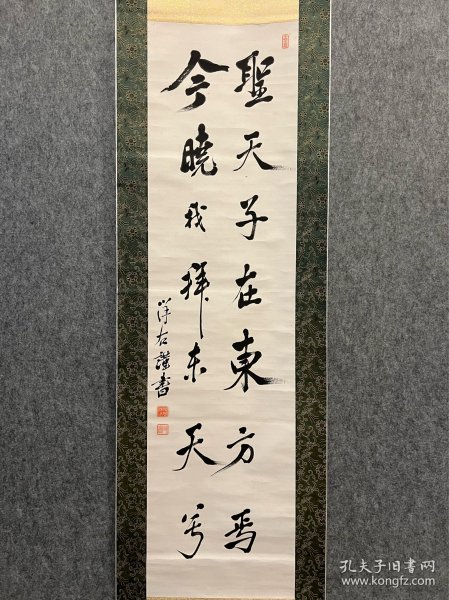 聖天子在東方焉
今曉我拜東天兮
洋右謹書
孔夫子旧书网
www.kongfz.com